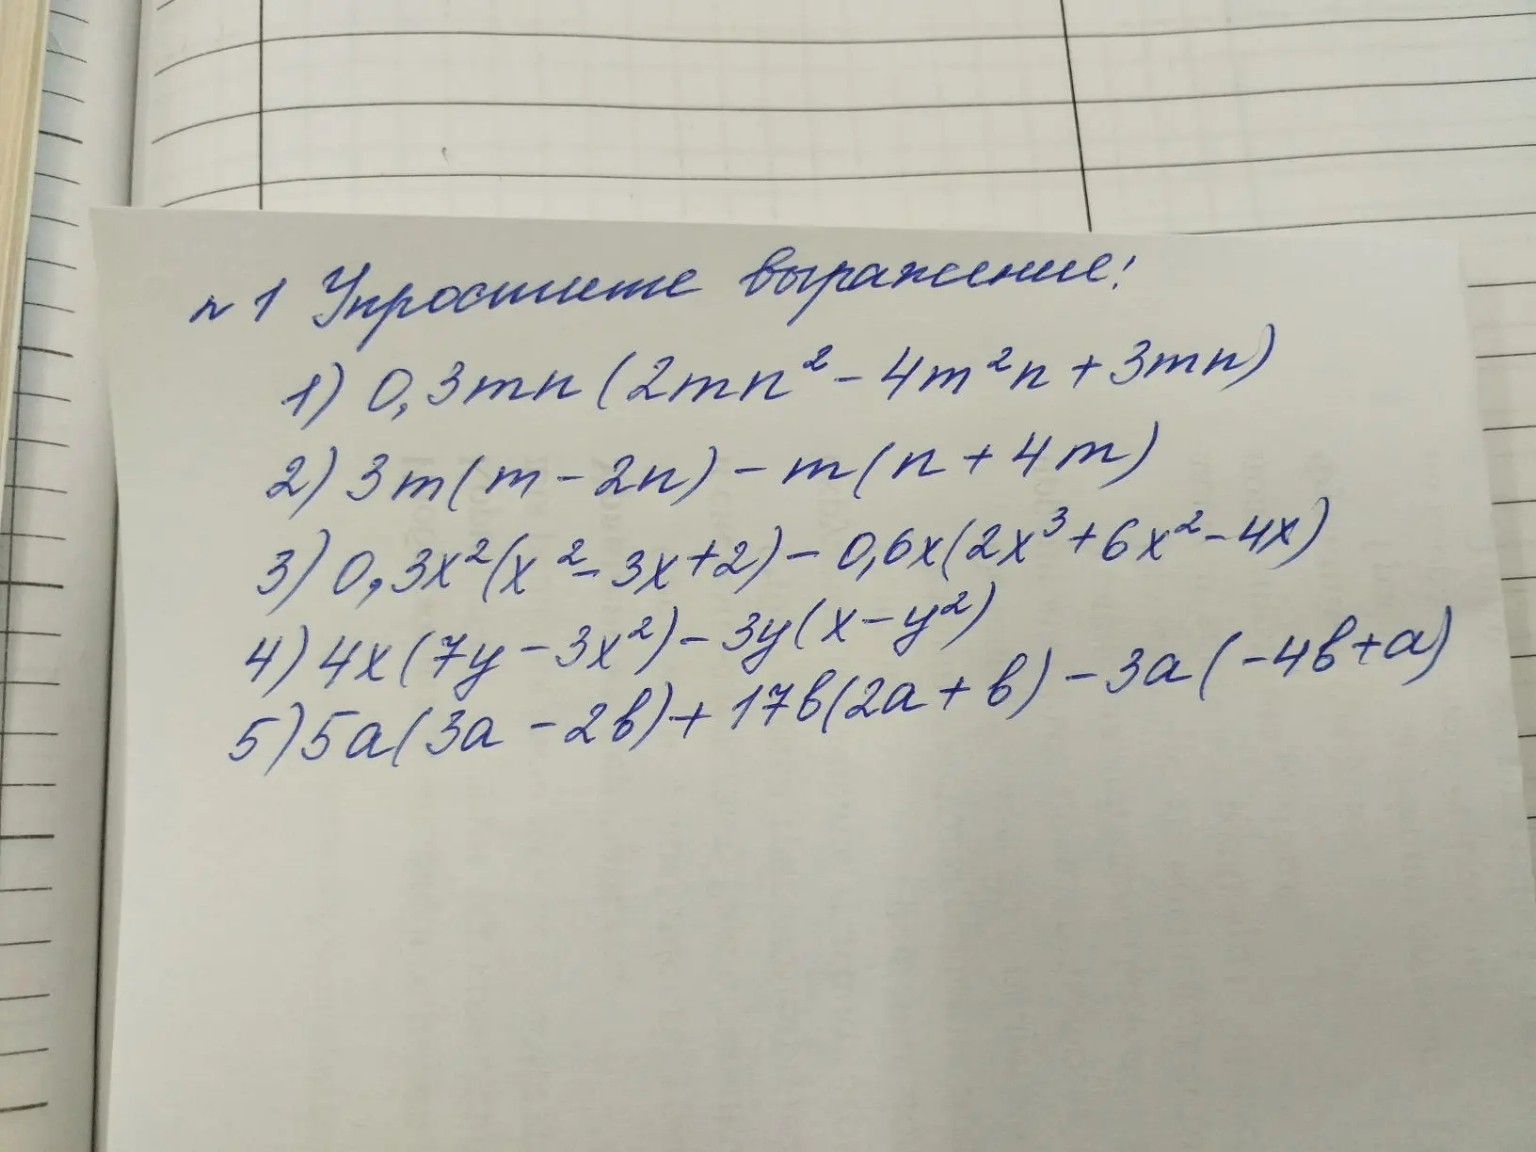 №1 Упростите выражение:
1) 0,3mn(2mn² - 4m²n + 3mn)
2) 3m(m - 2n) - m(n + 4m)
3) 0,3x²(x² - 3x + 2) - 0,6x(2x³ + 6x² - 4x)
4) 4x(7y - 3x²) - 3y(x - y²)
5) 5a(3a - 2b) + 17b(2a + b) - 3a(-4b + a)